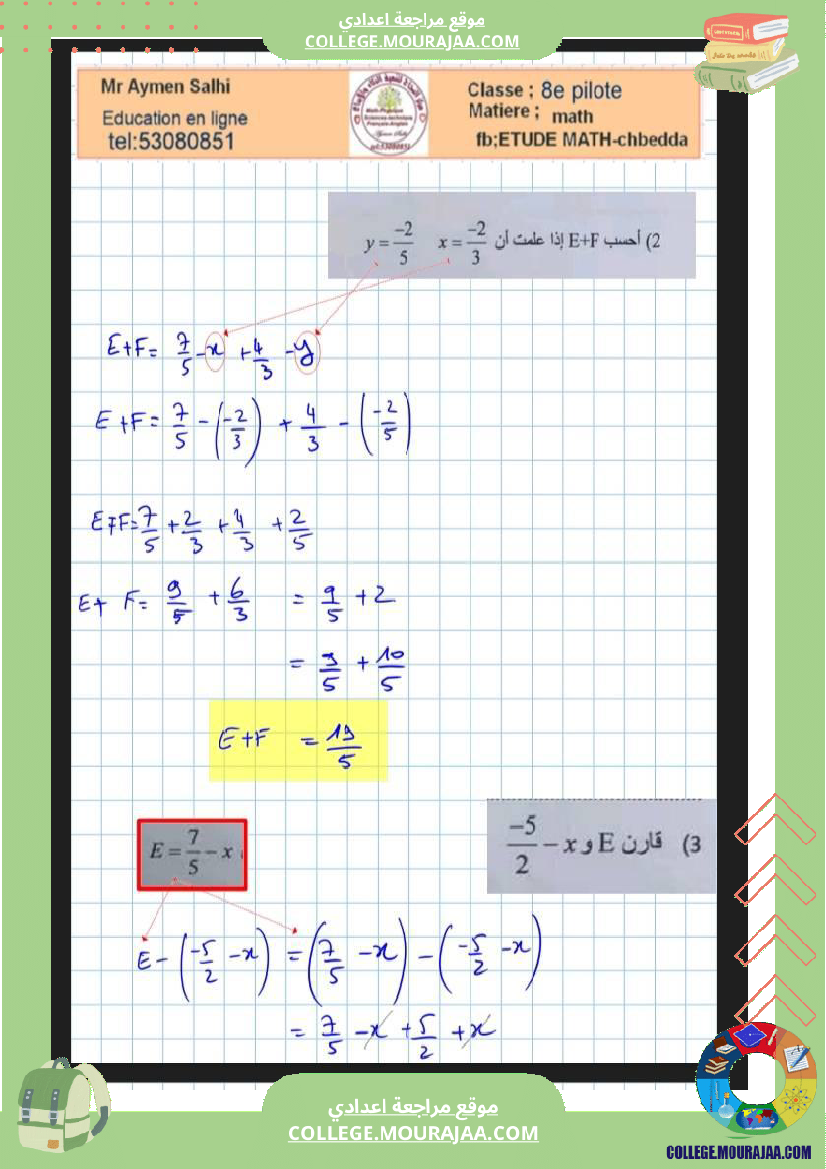 موقع مراجعة اعدادي
COLLEGE.MOURAJAA.COM
Mr Aymen Salhi
Education en ligne
tel:53080851
Classe ; 8e pilote
Matiere ; math
fb;ETUDE MATH-chbedda
2) أحسب E+F إذا علمت أن x = -2/3 y = -2/5
E+F= 7/5 - x + 4/3 - y
E+F= 7/5 - (-2/3) + 4/3 - (-2/5)
E+F= 7/5 + 2/3 + 4/3 + 2/5
E+ F= 9/5 + 6/3 = 9/5 + 2
= 9/5 + 10/5
E+F = 19/5
E = 7/5 - x
3) قارن E و -5/2 - x
E - (-5/2 - x) = (7/5 - x) - (-5/2 - x)
= 7/5 - x + 5/2 + x
موقع مراجعة اعدادي
COLLEGE.MOURAJAA.COM
COLLEGE.MOURAJAA.COM